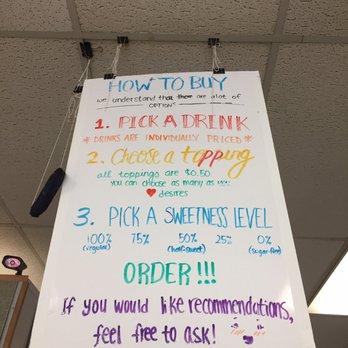 HOW TO BUY
we understand that there are alot of
OPTIONS
1. PICK A DRINK
* DRINKS ARE INDIVIDUALLY PRICED *
2. Choose a topping
all toppings are $0.50
you can choose as many as you
♥ desires
3. PICK A SWEETNESS LEVEL
100% 75% 50% 25% 0%
(regular) (half-sweet) (sugar-free)
ORDER!!!
If you would like recommendations,
feel free to ask!